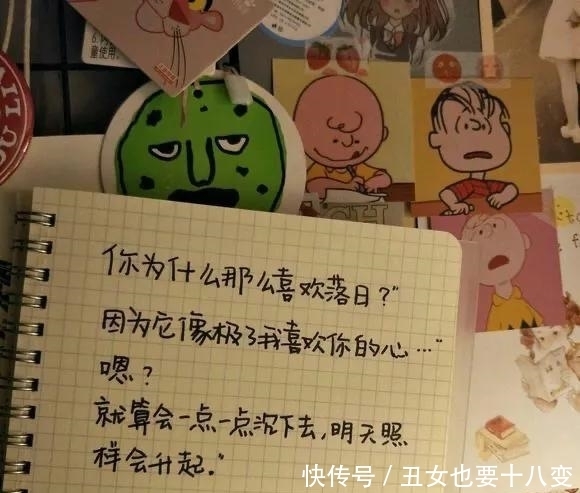 6.
童使用。
你为什么那么喜欢落日?”
因为它像极了我喜欢你的心…”
嗯?
就算会一点一点沉下去,明天照
样会升起。”
快传号/丑女也要十八变